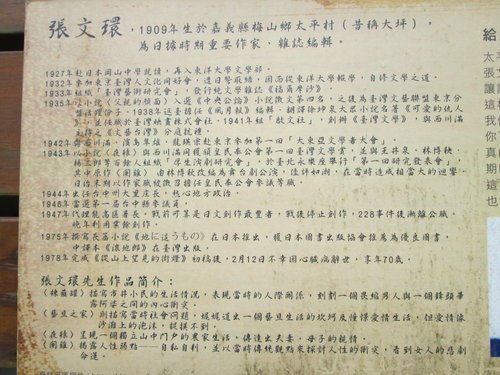 張文環，1909年生於嘉義縣梅山鄉太平村（昔稱大坪），
為日據時期重要作家，雜誌編輯。
1927年赴日本岡山中學就讀，再入東洋大學文學部。
1932年參加東京臺灣人文化同好會，遭日警取締，因而從東洋大學輟學，自修文學之道。
1933年組「臺灣藝術研究會」，發行純文學雜誌《福爾摩沙》。
1935年以小說《父親的顏面》入選《中央公論》小說徵文第四名，之後為臺灣文藝聯盟東京分
1938年返臺任《風月報》編輯，翻譯徐坤泉大眾小說名著《可愛的仇人
任職於臺灣映畫株式會社。1941年組「啟文社」，創辦《臺灣文學》，與西川滿
《文藝台灣》分庭抗禮。
1942年 西川滿、濱島隼雄、龍瑛宗赴東京參加第一回「大東亞文學者大會」。
1943年以小說《夜猿》與西川滿同獲頒皇民奉公會第一回臺灣文學賞，並與王井泉、林博秋、
等百餘人組成「厚生演劇研究會」，於臺北永樂座舉行「第一回研究發表會」，
其中原作《閹雞》由林博秋改編為舞台劇公演，佳評如潮，在當時造成相當大的迴響。
日治末期以作家職級徵召擔任皇民奉公會參議等職。
1944年出任台中州大里庄長，熱心地方政治。
1946年當選第一屆台中縣參議員。
1947年代理能高區署長，戰前可算是日文創作最豐者，戰後停止創作，228事件後漸離公職，
晚年利用業餘創作。
1975年撰寫長篇小說《地に這うもの》在日本推出，獲日本圖書出版協會推薦為優良圖書，
中譯本《滾地郎》在臺灣出版。
1978完成《從山上望見的街燈》初稿後，2月12日不幸因心臟病辭世，享年70歲。
張文環先生作品簡介：
《辣薤罐》描寫市井小民的生活情況，表現當時的人際關係，刻劃一個畏縮男人與一個鋒頭華
露阿婆之間的內心衝突。
《藝旦之家》則描寫當時社會問題，娓娓道出一個藝旦生活的坎坷及憧憬愛情生活，但愛情像
沙灘上的泡沫，捉摸不到。
《夜猿》呈現一個獨立山中門戶的農家生活，傳達出夫妻、母子的親情。
《閹雞》揭露人性弱點——自私自利，並以當時傳統觀念來探討人性的衝突，看到女人的悲劇
命運。
給
張
把
讓
這
我
你
真
期
這
也